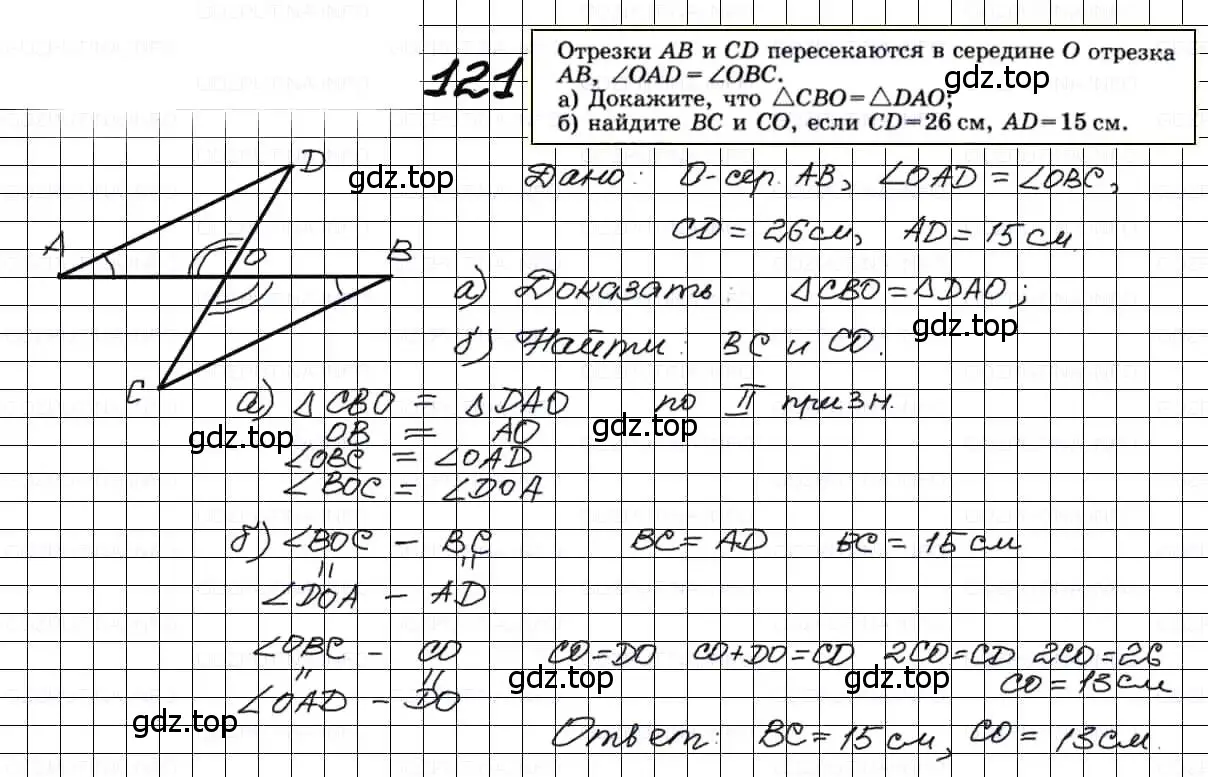 121
Отрезки AB и CD пересекаются в середине O отрезка
AB, ∠OAD = ∠OBC.
gdz.top
а) Докажите, что △CBO = △DAO;
б) найдите BC и CO, если CD = 26 см, AD = 15 см.
D
gdz.top
Дано: О-сер. AB, ∠OAD = ∠OBC,
CD = 26см, AD = 15 см.
A
O
B
а) Доказать: △CBO = △DAO;
gdz.top
б) Найти: BC и CO.
C
а) △CBO = △DAO по II призн.
gdz.top
gdz.top
OB = AO
∠OBC = ∠OAD
∠BOC = ∠DOA
б) ∠BOC - BC BC = AD BC = 15 см
" "
∠DOA - AD
∠OBC - CO CO = DO CO + DO = CD 2CO = CD 2CO = 26
" " gdz.top gdz.top CO = 13 см
∠OAD - DO
gdz.top
Ответ: BC = 15 см, CO = 13 см.